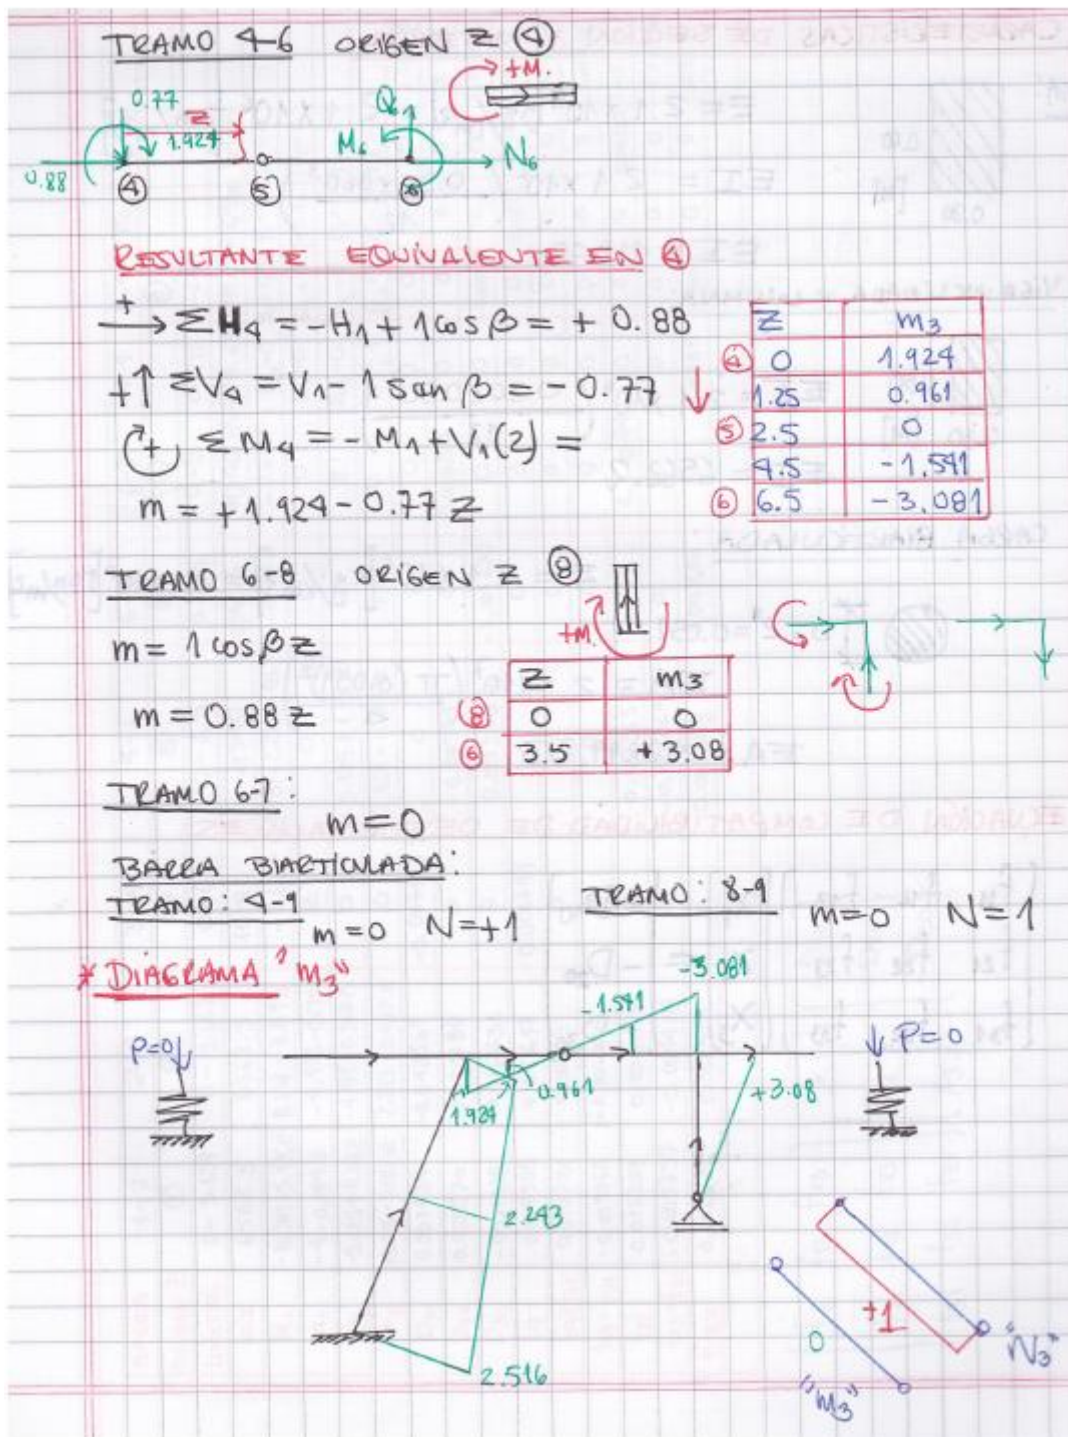 TRAMO 4-6 ORIGEN Z ④
+M.
0.77
Z
1.924
Q6
M6
N6
0.88
④ ⑤ ⑥
RESULTANTE EQUIVALENTE EN ④
+→ ΣH4 = -H1 + 1 cos β = + 0.88
+↑ ΣV4 = V1 - 1 sen β = - 0.77 ↓
+ Σ M4 = - M1 + V1(2) =
m = +1.924 - 0.77 Z
Z m3
④ 0 1.924
1.25 0.961
⑤ 2.5 0
4.5 -1.541
⑥ 6.5 -3.081
TRAMO 6-8 ORIGEN Z ⑧
+M.
m = 1 cos β z
m = 0.88 z
Z m3
⑧ 0 0
⑥ 3.5 +3.08
TRAMO 6-7:
m = 0
BARRA BIARTICULADA:
TRAMO: 4-9 m=0 N=+1
TRAMO: 8-9 m=0 N=1
* DIAGRAMA "m3"
-3.081
-1.541
P=0
P=0
0.961
1.924
+3.08
2.243
2.516
+1
0
"N3"
"m3"